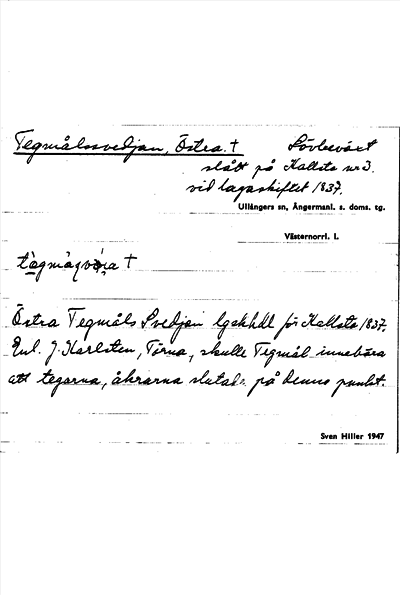 Tegmålssvedjan, Östra. † Lövbeväxt
slått på Kallsta nr 3.
vid lagaskiftet 1837.
Ullångers sn, Ångermanl. s. doms. tg.
Västernorrl. l.
Östra Tegmåls Svedjan lgskhdl för Kallsta 1837.
Enl. J. Karlsten, Törna, skulle Tegmål innebära
att tegarna, åkrarna slutade på denna punkt.
Sven Hiller 1947